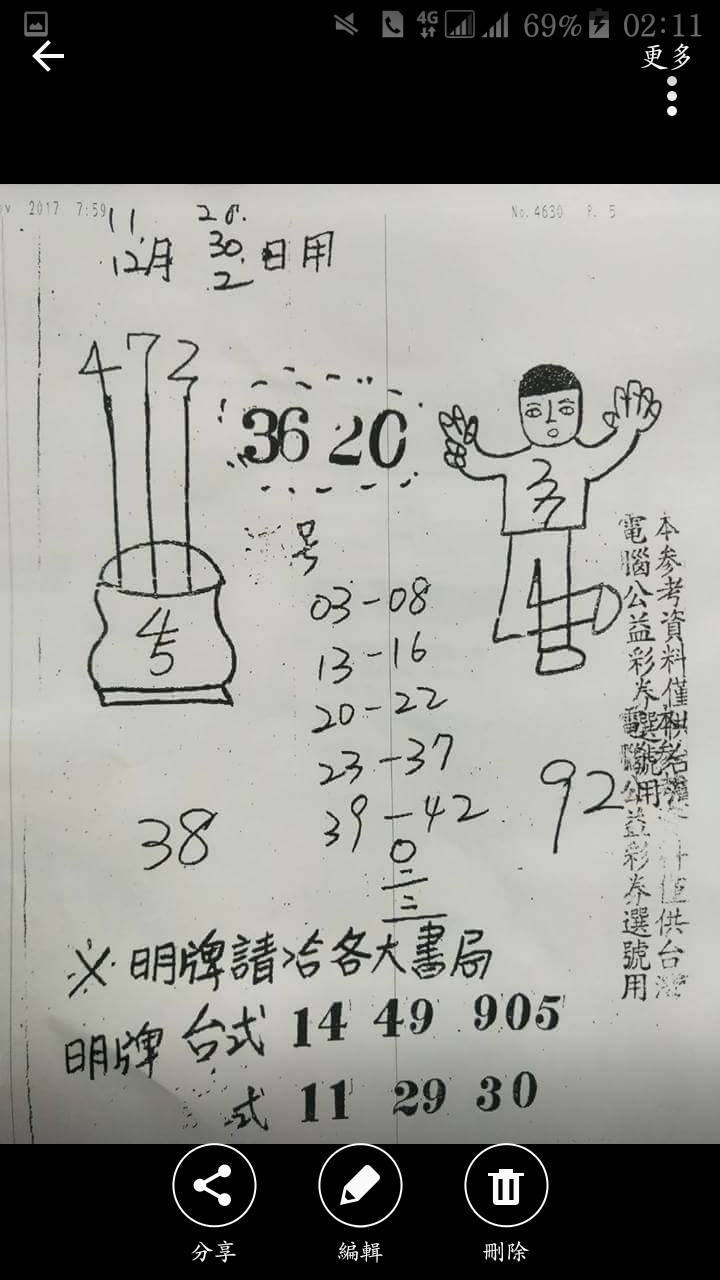 4G 69% 02:11
更多
2017 7:59
No.4630 P. 5
11 28.
12月 30. 日用
2
4 7 2
36 20
号
45
03-08
13-16
20-22
23-37
39-42
0
二
三
38
92
本参考資料僅供台灣
電腦公益彩券選號用
※明牌請洽各大書局
明牌 台式 14 49 905
式 11 29 30
分享
編輯
刪除